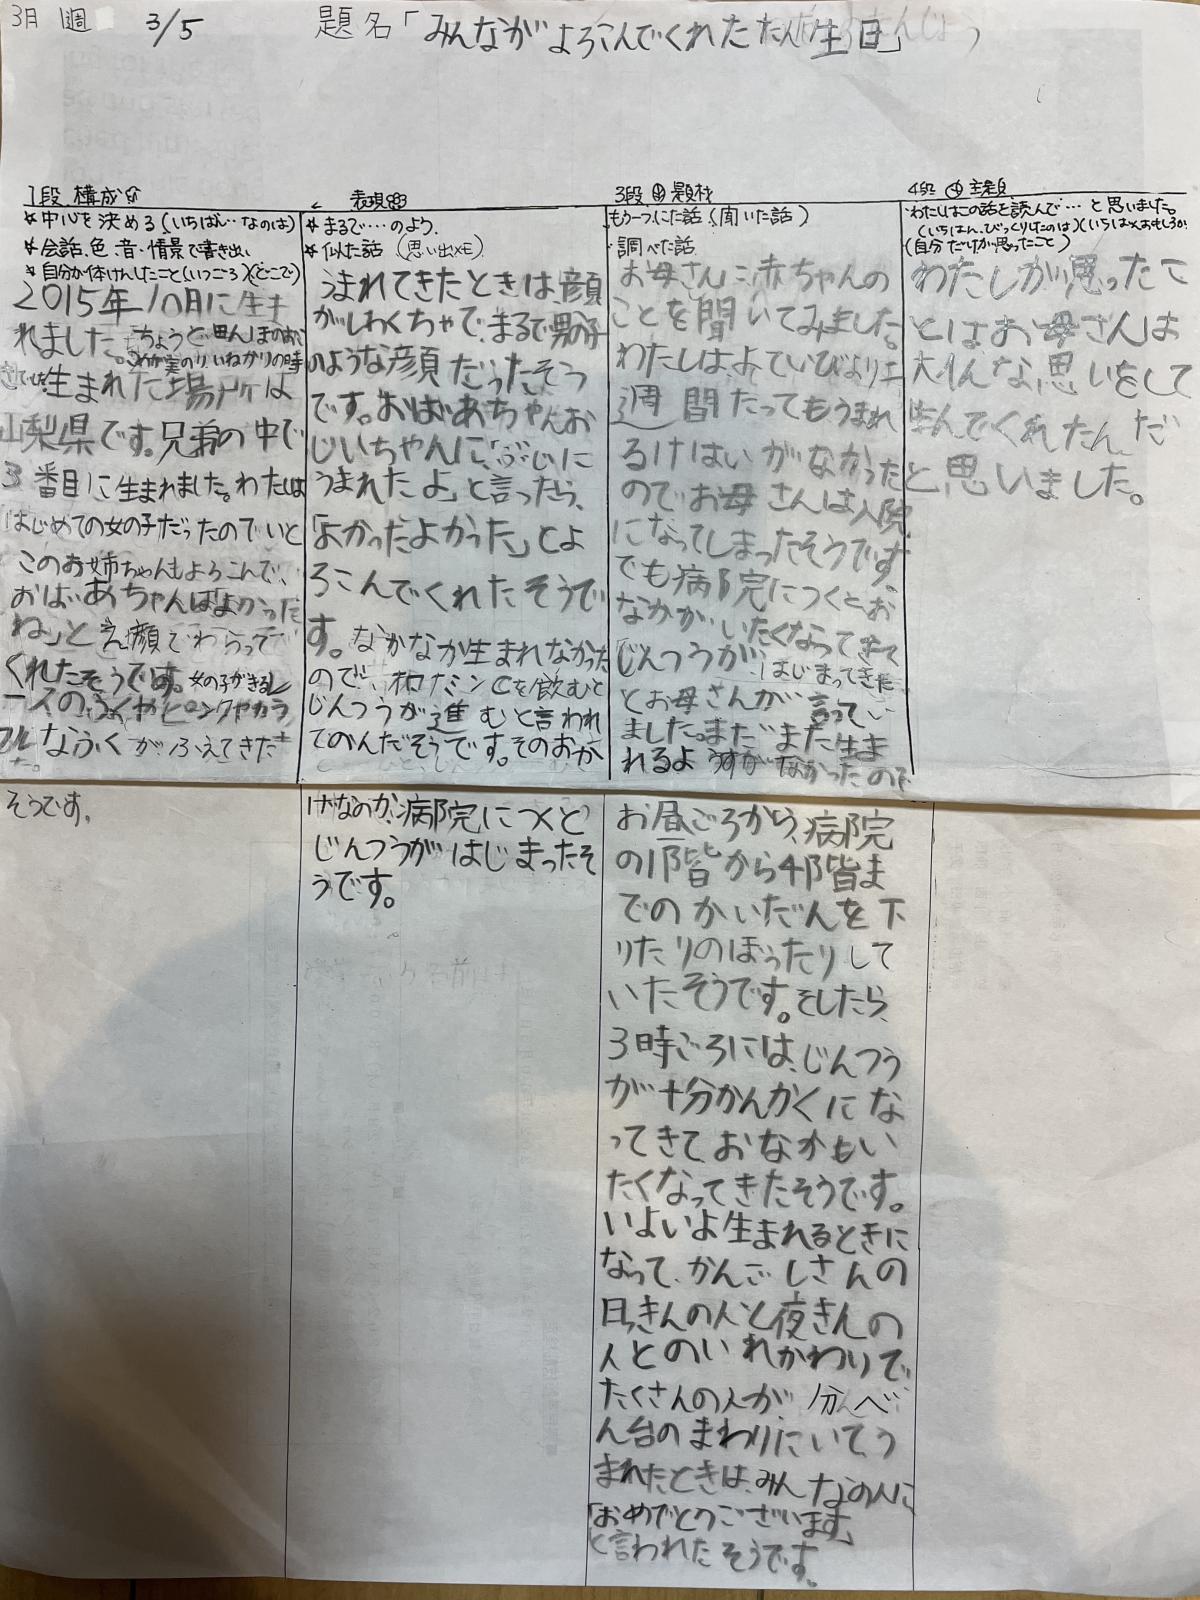 3月1週 3/5 題名「みんながよろこんでくれたたん生日」
1段 構成
★中心を決める(いちばん…なのは)
★会話、色、音、情景で書き出し
★自分が体けんしたこと(いつごろ)(どこで)
2015年10月に生ま
れました。ちょうど田んぼのお
こめが実のり、いねかりの時
きです。生まれた場所は
山梨県です。兄弟の中で
3番目に生まれました。わたしは
はじめての女の子だったのでいと
このお姉ちゃんもよろこんで、
おばあちゃんは「よかった
ね」とえ顔でわらって
くれたそうです。女の子がきるレ
ースのふくやピンクやカラ
フルなふくがふえてきた
そうです。
表現
★まるで……のよう。
★似た話(思い出×モ)
うまれてきたときは、顔
がしわくちゃで、まるで男の子
のような顔だったそう
です。おばあちゃんお
じいちゃんに、「ぶじに
うまれたよ」と言ったら、
「よかったよかった」とよ
ろこんでくれたそうで
す。なかなか生まれなかった
ので、オロナミンCを飲むと
じんつうが進むと言われ
てのんだそうです。そのおか
げなのか、病院につくと
じんつうがはじまったそ
うです。
3段 題材
もう一つにた話(聞いた話)
調べた話
お母さんに赤ちゃんの
ことを聞いてみました。
わたしは、よていびより二
週間たってもうまれ
るけはいがなかった
ので、お母さんは入院
になってしまったそうです。
でも病院につくとお
なかがいたくなってきて
「じんつうが、はじまってきた」
とお母さんが言ってい
ました。まだまだ生ま
れるようすがなかったので
お昼ごろから、病院
の1階から4階ま
でのかいだんを下
りたりのぼったりして
いたそうです。そしたら、
3時ごろには、じんつう
が十分かんかくにな
ってきて、おなかもい
たくなってきたそうです。
いよいよ生まれるときに
なって、かんごしさんの
日っきんの人と夜きんの
人とのいれかわりで
たくさんの人が、分べ
ん台のまわりにいて、う
まれたときは、みんなの人に
「おめでとうございます」
と言われたそうです。
4段 主題
わたしはこの話を読んで…と思いました。
(いちばん、びっくりしたのは)(いちばんおもしろか
(自分だけが思ったこと)
わたしが思ったこ
とはお母さんは
大へんな思いをして
生んでくれたんだ
と思いました。